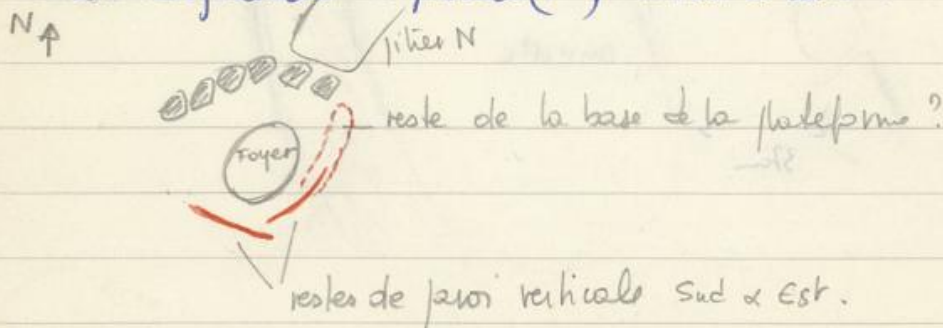 N
pilier N
reste de la base de la plateforme ?
Foyer
restes de paroi verticale Sud & Est.